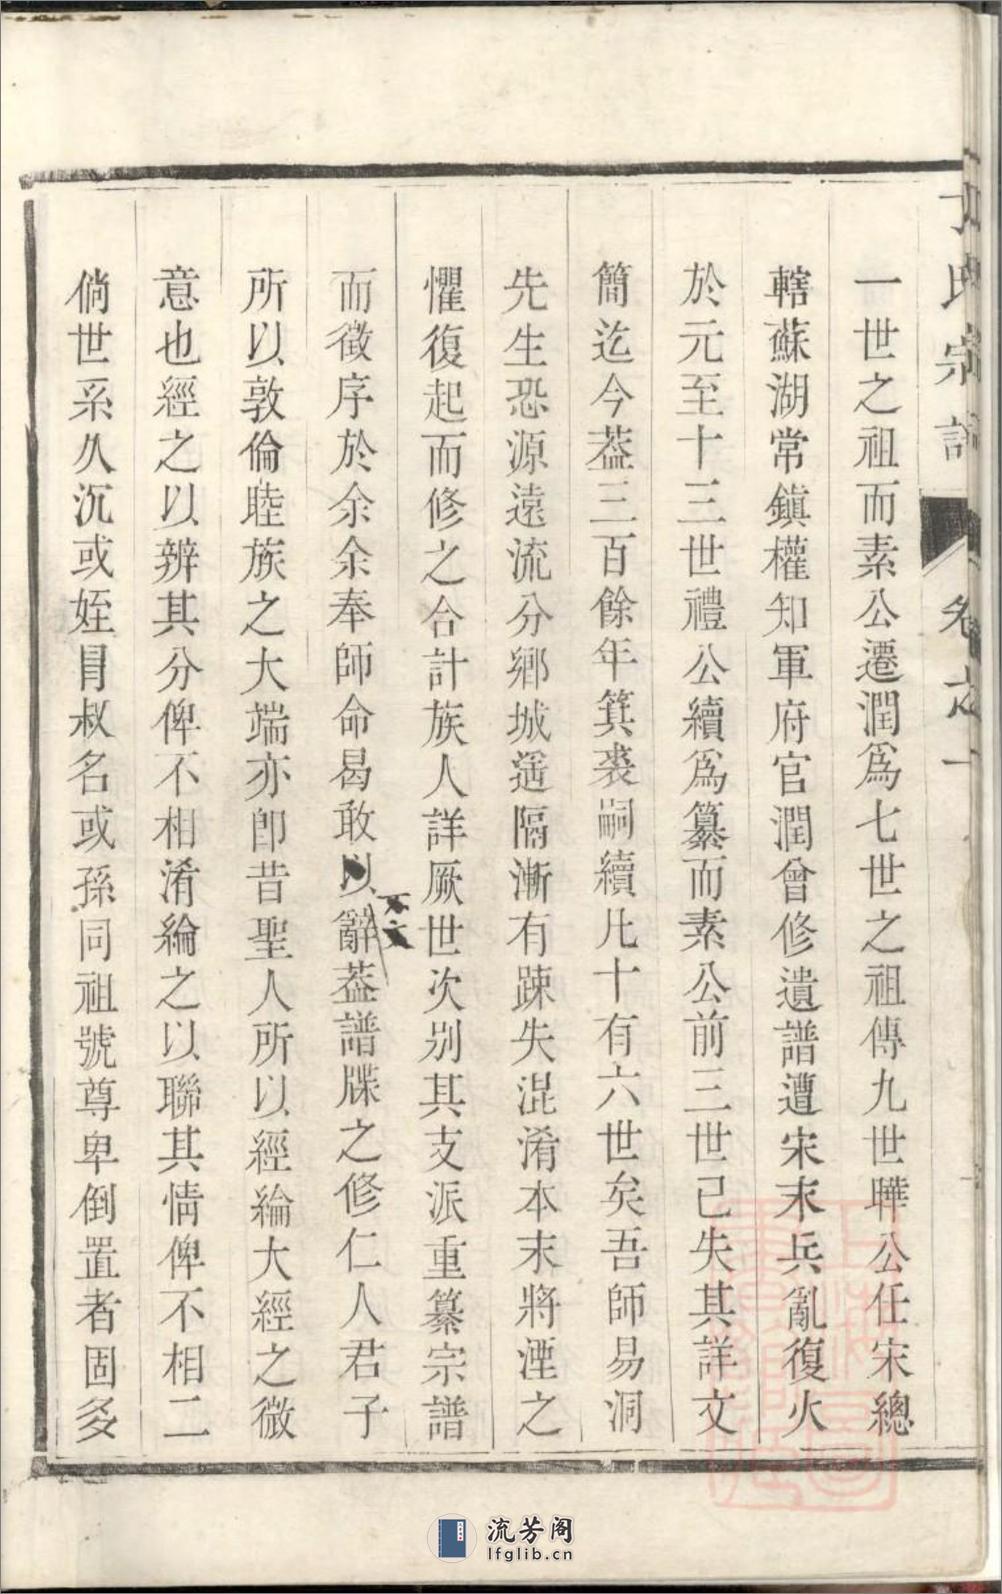 氏宗譜 卷之一
一世之祖而素公遷潤爲七世之祖傳九世曄公任宋總
轄蘇湖常鎮權知軍府官潤曾修遺譜遭宋末兵亂復火
於元至十三世禮公續爲纂而素公前三世已失其詳文
簡迄今葢三百餘年箕裘嗣續凡十有六世矣吾師易洞
先生恐源遠流分鄉城遥隔漸有踈失混淆本末將湮之
懼復起而修之合計族人詳厥世次别其支派重纂宗譜
而徵序於余余奉師命曷敢以不文辭葢譜牒之修仁人君子
所以敦倫睦族之大端亦卽昔聖人所以經綸大經之微
意也經之以辨其分俾不相淆綸之以聯其情俾不相二
倘世系久沉或姪冐叔名或孫同祖號尊卑倒置者固多
流芳阁
lfglib.cn